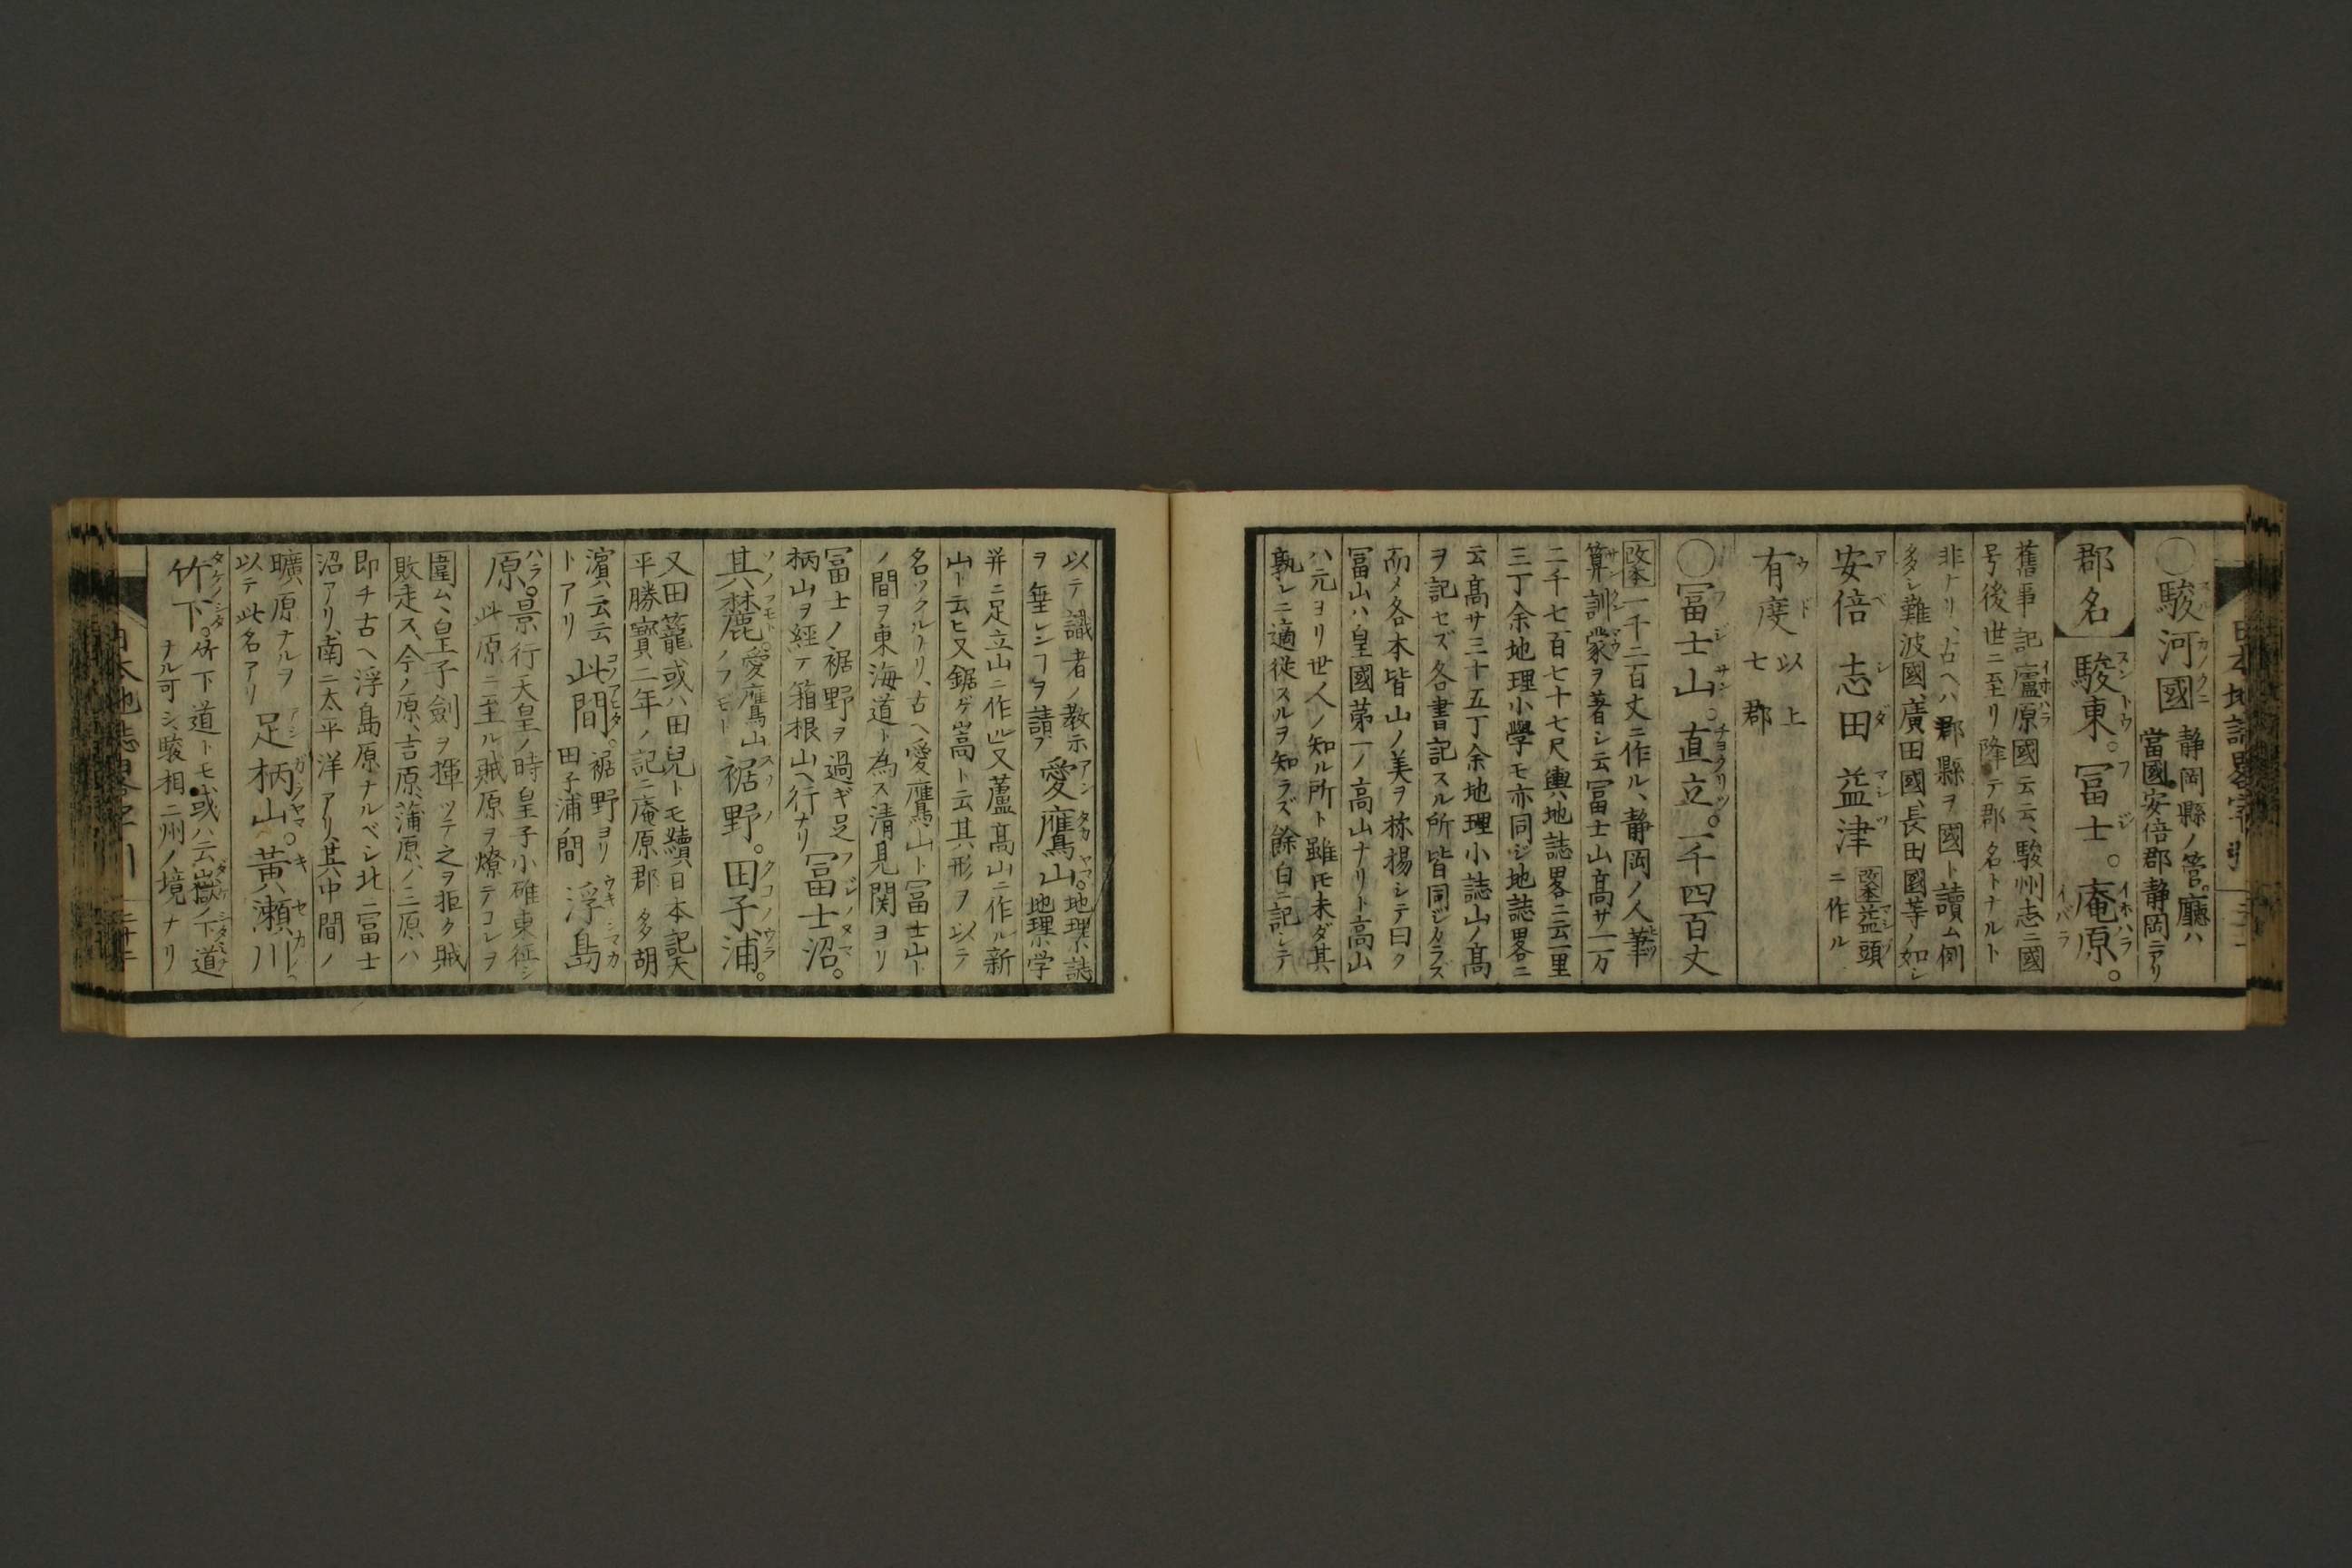 〇駿河國 静岡縣ノ管。廳ハ
當國安倍郡静岡ニアリ
舊事記廬原國云云、駿州志ニ國
号後世ニ至リ降テ郡名トナルト
郡名 駿東。冨士。庵原。
非ナリ、古ヘハ郡縣ヲ國ト讀ム例
多タシ難波國、廣田國、長田國等ノ如シ
安倍 志田 益津 改本益頭
ニ作ル
有度 以上
七郡
〇冨士山。直立。一千四百丈
改本一千二百丈ニ作ル、静岡ノ人筆
算訓蒙ヲ著シ云冨士山髙サ一万
二千七百七十七尺輿地誌畧ニ云一里
三丁余地理小學モ亦同シ地誌畧ニ
云髙サ三十五丁余地理小誌山ノ髙
ヲ記セズ各書記スル所皆同ジカラス
而メ各本皆山ノ美ヲ称揚シテ曰ク
冨山ハ皇國苐一ノ高山ナリト高山
ハ元ヨリ世人ノ知ル所ト雖モ未ダ其
孰レニ適従スルヲ知ラズ餘白ニ記シテ
以テ識者ノ教示
ヲ垂レンヿヲ請フ 愛鷹山。地理小誌
地理小学
并ニ足立山ニ作ル又蘆髙山ニ作ル新
山ト云ヒ又鋸ゲ嵩ト云其形ヲ以テ
名ツクルナリ、古ヘ愛鷹山ト冨士山ト
ノ間ヲ東海道ト為ス清見関ヨリ
冨士ノ裾野ヲ過ギ足
柄山ヲ経テ箱根山ヘ行ナリ 冨士沼。
其麓ノフモト 愛鷹山 裾野。田子浦。
又田籠或ハ田兒トモ續日本記天
平勝寳二年ノ記ニ庵原郡多胡
濱云云
トアリ 此間。裾野ヨリ
田子浦間 浮島
原。景行天皇ノ時皇子小碓東征シ
此原ニ至ル賊原ヲ燎テコレヲ
圍ム、皇子劍ヲ揮ツテ之ヲ拒ク賊
敗走ス、今ノ原、吉原、蒲原、ノ三原ハ
即チ古ヘ浮島原ナルベシ北ニ冨士
沼アリ、南ニ太平洋アリ、其中間ノ
曠原ナルヲ
以テ此名アリ 足柄山。黄瀬川
竹下。竹下道トモ或ハ云嶽ノ下道
ナル可シ、駿相二州ノ境ナリ